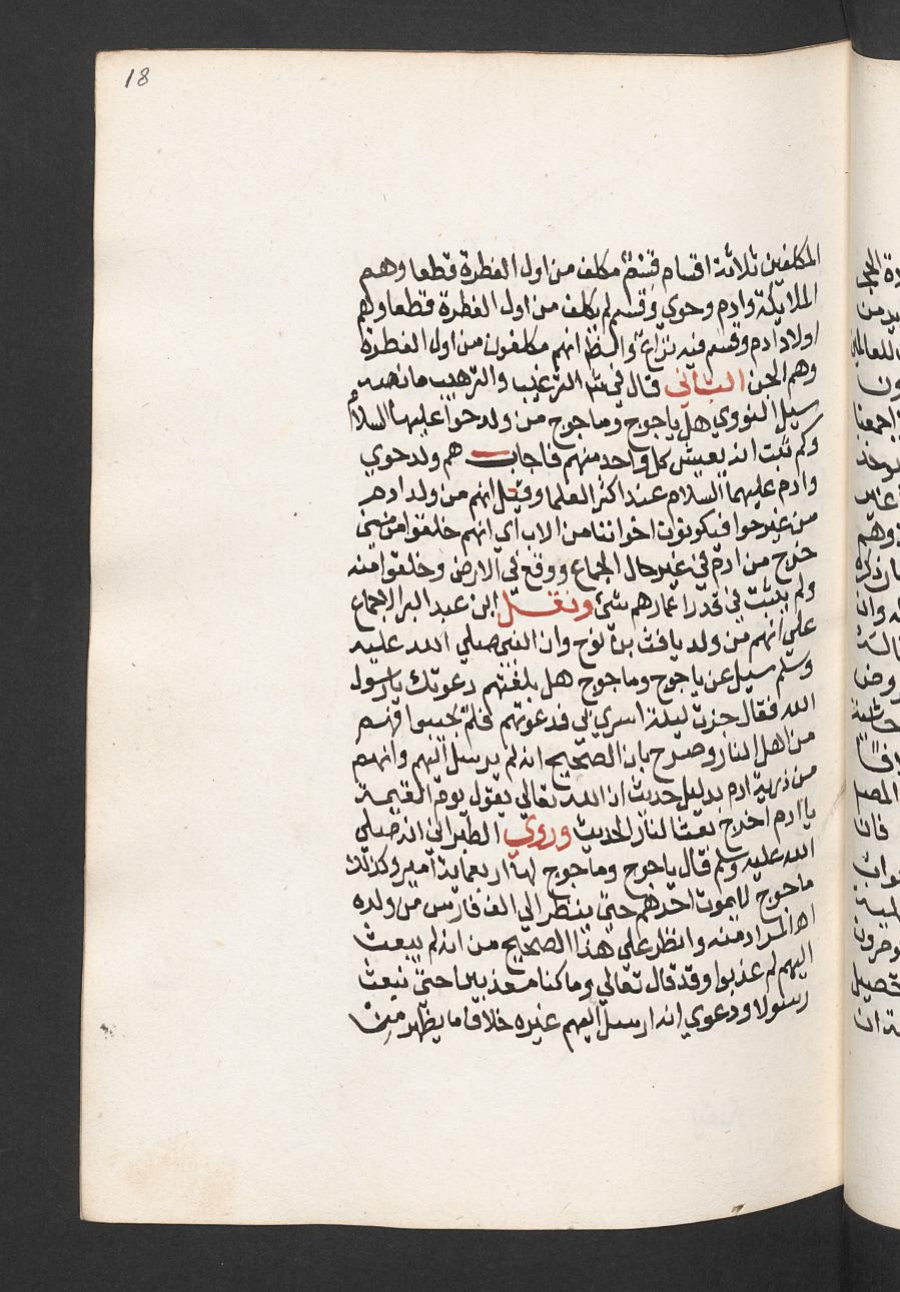 18
المكلفين ثلاثة اقسام قسم مكلف من اول الفطرة قطعا وهم
الملايكة وادم وحوي وقسم لم يكلف من اول الفطرة قطعا وهم
اولاد ادم وقسم فيه نزاع والظ انهم مكلفون من اول الفطرة
وهم الجن الثاني قال في الترغيب والترهيب ما نصه
سيل النووي هل ياجوج وماجوج من ولد حوا عليها السلام
وكم ثبت انه يعيش كل واحد منهم فاجاب هم ولد حوي
وادم عليهما السلام عند اكثر العلما وقيل انهم من ولد ادم
من غير حوا فيكونون اخواننا من الاب اي انهم خلقوا من مني
خرج من ادم في غير حال الجماع ووقع في الارض وخلقوا منه
ولم يثبت في قدر اعمارهم شي ونقل ابن عبد البر الاجماع
علي انهم من ولد يافث بن نوح وان النبي صلي الله عليه
وسلم سيل عن ياجوج وماجوج هل بلغتهم دعوتك يا رسول
الله فقال جزت ليلة اسري بي فدعوتهم فلم يجيبوا فهم
من اهل النار وصرح بان الصحيح انه لم يرسل اليهم وانهم
من ذرية ادم بدليل حديث ان الله تعالي يقول يوم القيمة
يا ادم اخرج بعث النار الحديث وروي الطبراني انه صلي
الله عليه وسلم قال ياجوج وماجوج لها اربعماية امير وكذلك
ماجوج لا يموت احدهم حتي ينظر الي الف فارس من ولده
اه المراد منه وانظر علي هذا الصحيح من انه لم يبعث
اليهم لم عذبوا وقد قال تعالي وما كنا معذبين حتي نبعث
رسولا ودعوي انه ارسل اليهم غيره خلاف ما يظهر من